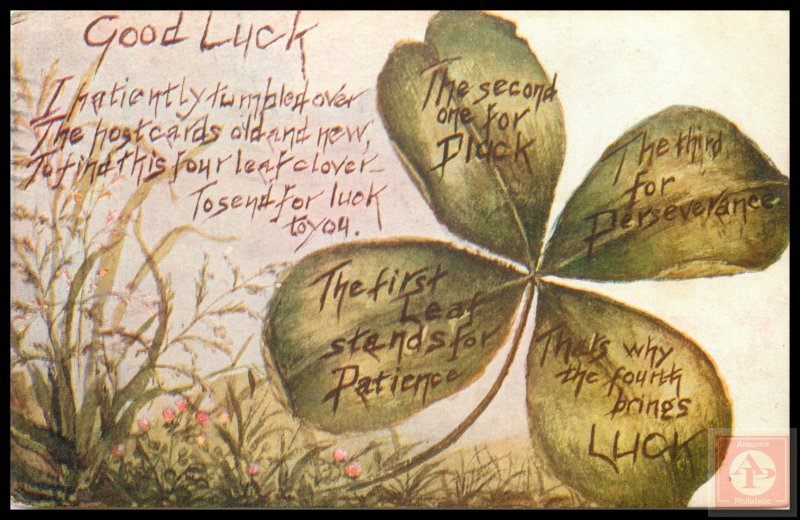 Good Luck
I patiently tumbled over
The postcards old and new,
To find this four leaf clover_
To send for luck
to you.
The first
Leaf
stands for
Patience
The second
one for
Pluck
The third
for
Perseverance
Thats why
the fourth
brings
LUCK
Ansonia
Philatelic